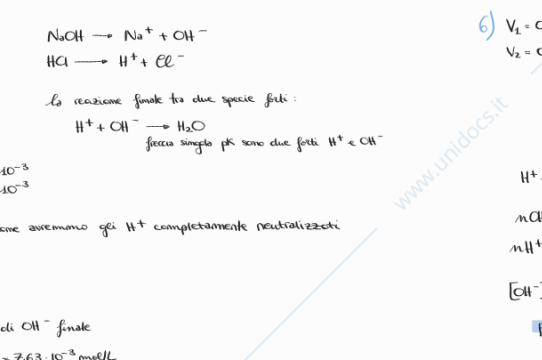 NaOH → Na⁺ + OH⁻
HCl → H⁺ + Cl⁻
la reazione finale tra due specie forti :
H⁺ + OH⁻ → H₂O
freccia singola pk sono due forti H⁺ e OH⁻
10⁻³
10⁻³
ome avremmo gli H⁺ completamente neutralizzati
di OH⁻ finale
= 7,63 · 10⁻³ mol/L
6) V₁ =
V₂ =
H⁺
nH⁺
[OH⁻]
www.unidocs.it